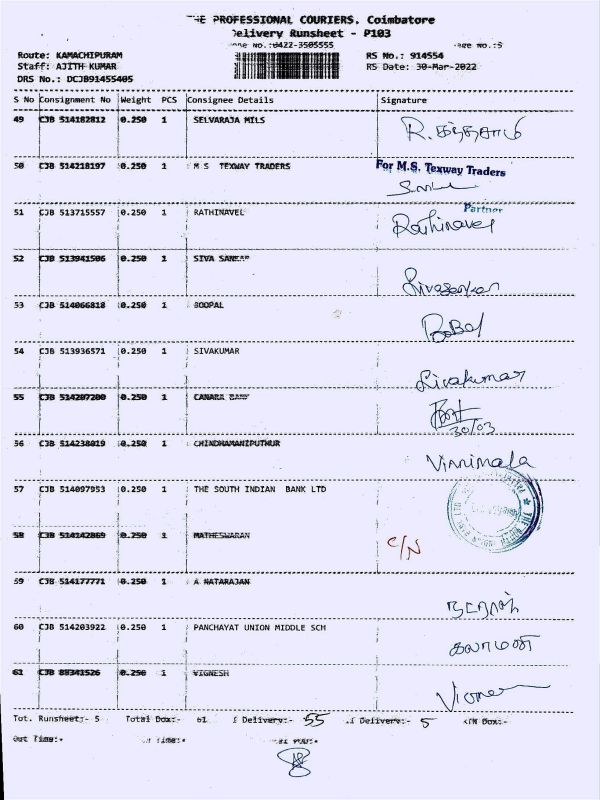 THE PROFESSIONAL COURIERS. Coimbatore
Delivery Runsheet - P103
No.:0422-3505555 No.:5
Route: KAMACHIPURAM RS No.: 914554
Staff: AJITH KUMAR RS Date: 30-Mar-2022
DRS No.: DCJB91455405
S No Consignment No Weight PCS Consignee Details Signature
49 CJB 514182812 0.250 1 SELVARAJA MILS R. கந்தசாமி
50 CJB 514218197 0.250 1 M S TEXWAY TRADERS For M.S. Texway Traders
Partner
51 CJB 513715557 0.250 1 RATHINAVEL Rathinavel
52 CJB 513941506 0.250 1 SIVA SANKAR Sivasankar
53 CJB 514066818 0.250 1 GOOPAL
54 CJB 513936571 0.250 1 SIVAKUMAR Sivakumar
55 CJB 514207200 0.250 1 CANARA BANK
30/03
56 CJB 514238019 0.250 1 CHINDHAMANIPUTHUR
57 CJB 514097953 0.250 1 THE SOUTH INDIAN BANK LTD
58 CJB 514142869 0.250 1 MATHESWARAN C/N
59 CJB 514177771 0.250 1 A NATARAJAN நடராஜ்
60 CJB 514203922 0.250 1 PANCHAYAT UNION MIDDLE SCH கலாமணி
61 CJB 88341526 0.250 1 VIGNESH
Tot. Runsheet:- 5 Total Dox:- 61 Delivery:- 55 Delivery:- 5 Dox:-
Out Time:- Time:-